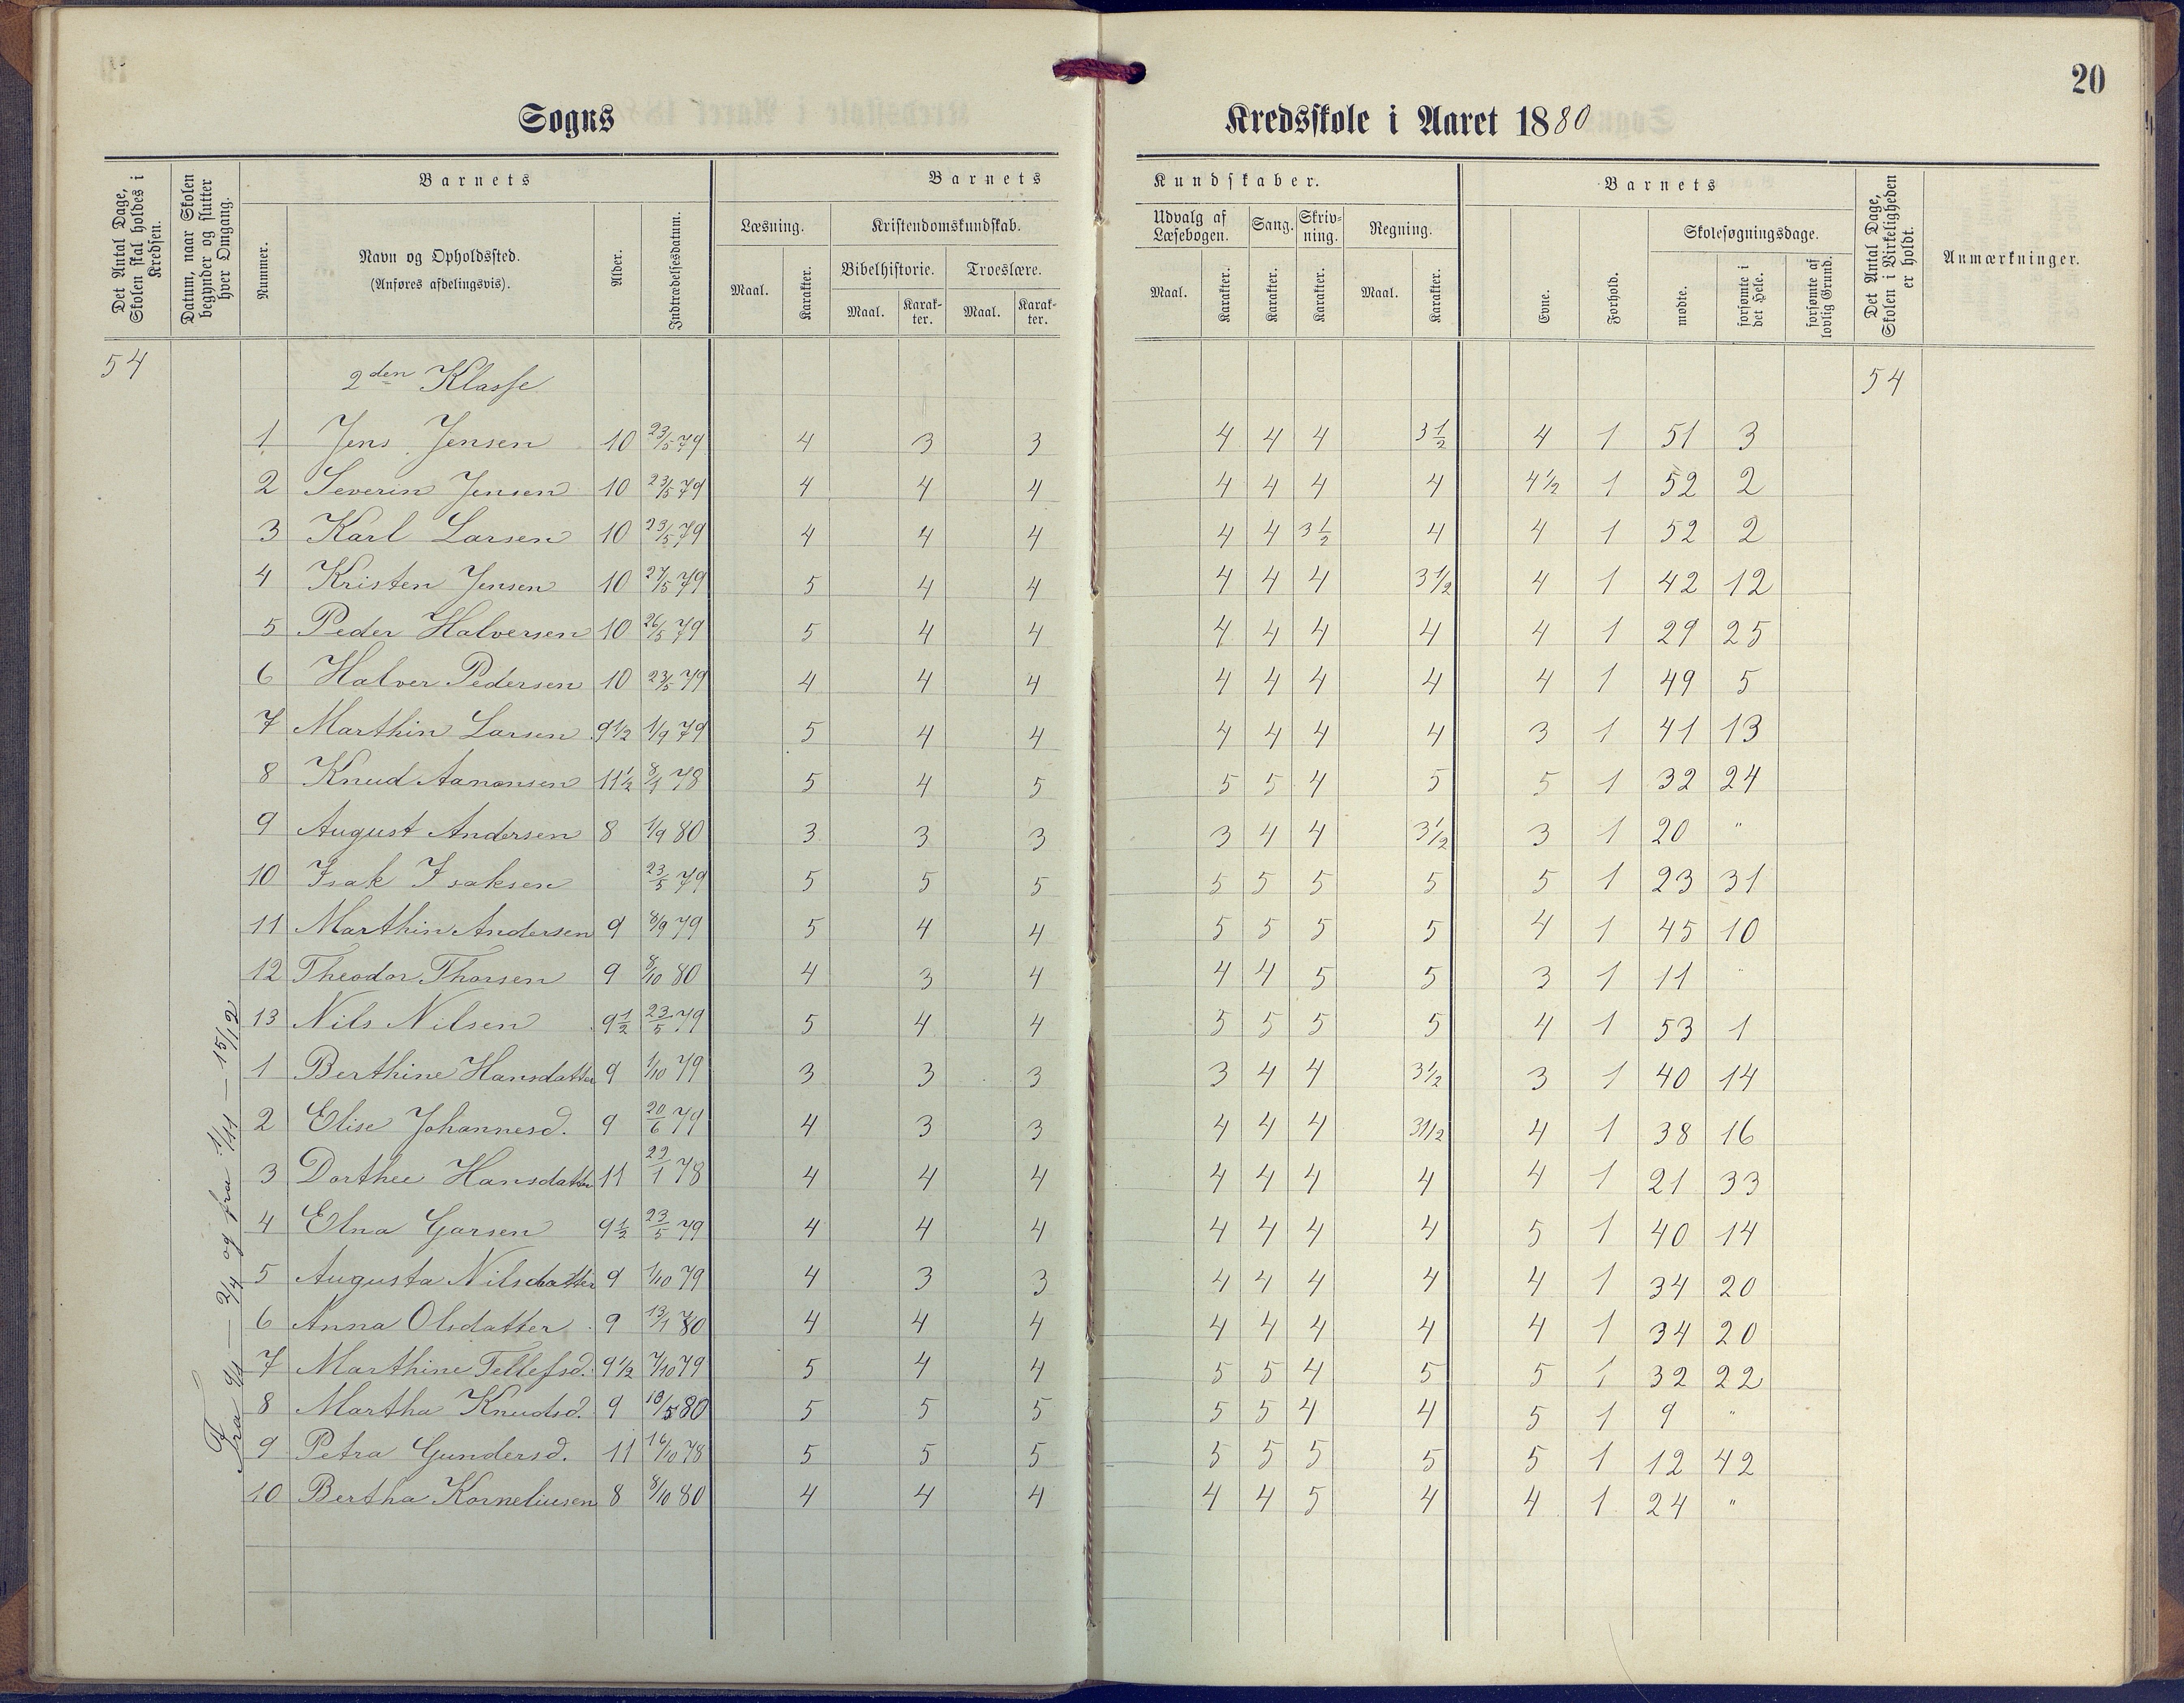 20
Sogns Kredsskole i Aaret 1880
Det Antal Dage, Skolen skal holdes i Kredsen.
Datum, naar Skolen begynder og slutter hver Omgang.
Barnets
Nummer.
Navn og Opholdssted.
(Anføres afdelingsvis).
Alder.
Indtrædelsesdatum.
Barnets Kundskaber.
Læsning.
Maal.
Karakter.
Kristendomskundskab.
Bibelhistorie.
Maal.
Karakter.
Troeslære.
Maal.
Karakter.
Udvalg af Læsebogen.
Maal.
Karakter.
Sang.
Karakter.
Skrivning.
Karakter.
Regning.
Maal.
Karakter.
Barnets
Evne.
Forhold.
Skolesøgningsdage.
mødte.
forsømte i det Hele.
forsømte af lovlig Grund.
Det Antal Dage, Skolen i Virkeligheden er holdt.
Anmærkninger.
54 2den Klasse 54
1 Jens Jensen 10 23/5 79 4 3 3 4 4 4 3 1/2 4 1 51 3
2 Severin Jensen 10 23/5 79 4 4 4 4 4 4 4 4 1/2 1 52 2
3 Karl Larsen 10 23/5 79 4 4 4 4 4 3 1/2 4 4 1 52 2
4 Kristen Jensen 10 27/5 79 5 4 4 4 4 4 3 1/2 4 1 42 12
5 Peder Halversen 10 26/5 79 5 4 4 4 4 4 4 4 1 29 25
6 Halver Pedersen 10 23/5 79 4 4 4 4 4 4 4 4 1 49 5
7 Marthin Larsen 9 1/2 1/9 79 5 4 4 4 4 4 4 3 1 41 13
8 Knud Aanonsen 11 1/2 8/1 78 5 4 5 5 5 4 5 5 1 32 24
9 August Andersen 8 1/9 80 3 3 3 3 4 4 3 1/2 3 1 20 "
10 Isak Isaksen 23/5 79 5 5 5 5 5 5 5 5 1 23 31
11 Marthin Andersen 9 8/9 79 5 4 4 5 5 5 5 4 1 45 10
12 Theodor Thorsen 9 8/10 80 4 3 4 4 4 5 5 3 1 11 "
13 Nils Nilsen 9 1/2 23/5 79 5 4 4 5 5 5 5 4 1 53 1
1 Berthine Hansdatter 9 1/10 79 3 3 3 3 4 4 3 1/2 3 1 40 14
2 Elise Johannesd. 9 20/6 79 4 3 3 4 4 4 3 1/2 4 1 38 16
3 Dorthee Hansdatter 11 22/1 78 4 4 4 4 4 4 4 4 1 21 33
4 Elna Garsen 9 1/2 23/5 79 4 4 4 4 4 4 4 5 1 40 14
5 Augusta Nilsdatter 9 1/10 79 4 3 3 4 4 4 4 4 1 34 20
6 Anna Olsdatter 9 13/1 80 4 4 4 4 4 4 4 4 1 34 20
7 Marthine Tellefsd. 9 1/2 7/10 79 5 4 4 5 5 4 5 5 1 32 22
8 Martha Knudsd. 9 18/5 80 5 5 5 5 5 4 4 5 1 9 "
9 Petra Gundersd. 11 16/10 78 5 5 5 5 5 5 5 5 1 12 42
10 Bertha Korneliusen 8 8/10 80 4 4 4 4 4 5 4 4 1 24 "
Fra — 2/4 og fra 1/11 — 15/12